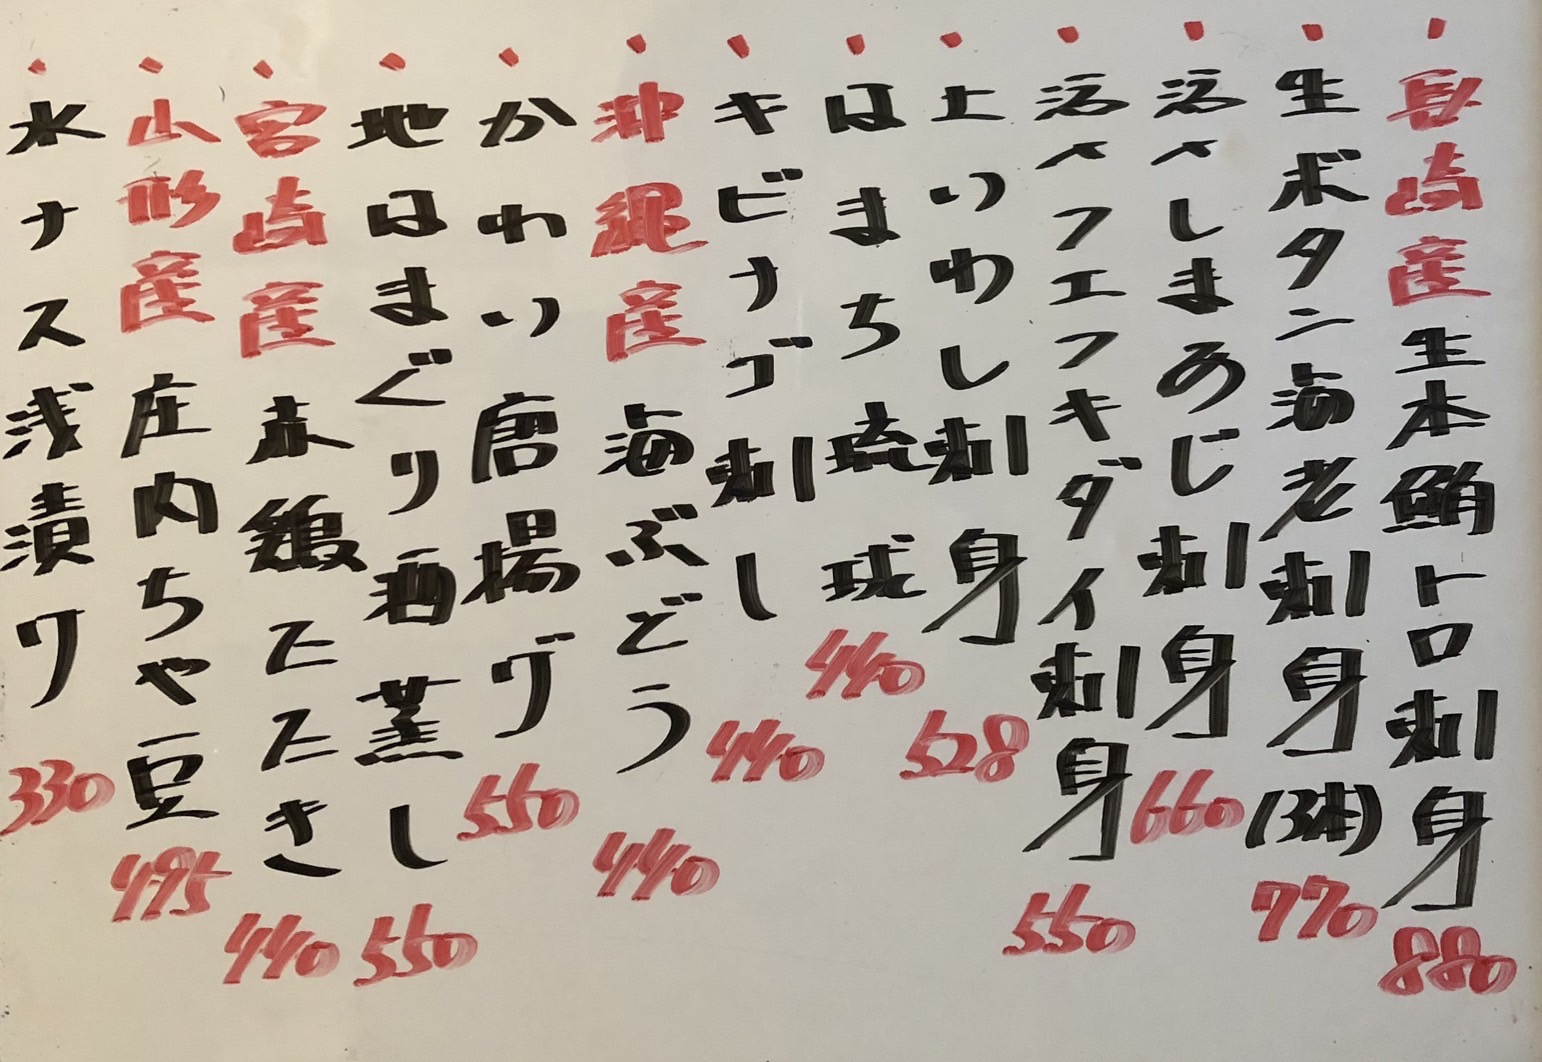 長崎産生本鮪トロ刺身 880
生ボタン海老刺身(3本) 770
活〆しまあじ刺身 660
活〆フエフキダイ刺身 550
上いわし刺身 528
はまち琉球 440
キビナゴ刺し 440
沖縄産海ぶどう 440
かわい唐揚げ 550
地はまぐり酒蒸し 550
宮崎産赤鶏たたき 440
山形産庄内ちゃ豆 495
水ナス浅漬け 330